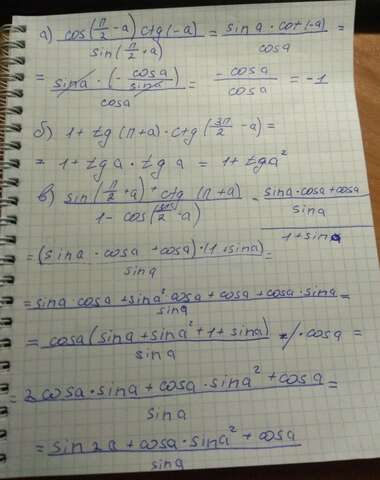 а) cos(π/2 - a) ctg(-a) / sin(π/2 + a) = sin a · cot(-a) / cos a =
= sin a · (- cos a / sin a) / cos a = - cos a / cos a = -1
б) 1 + tg(π + a) · ctg(3π/2 - a) =
= 1 + tg a · tg a = 1 + tg a²
в) sin(π/2 + a) + ctg(π + a) / 1 - cos(3π/2 - a) = sin a · cos a + cos a / sin a / 1 + sin a
= (sin a · cos a + cos a) · (1 + sin a) / sin a =
= sin a cos a + sin a² cos a + cos a + cos a · sin a / sin a =
= cos a (sin a + sin a² + 1 + sin a) / sin a · cos a =
= 2 cos a · sin a + cos a · sin a² + cos a / sin a =
= sin 2a + cos a · sin a² + cos a / sin a